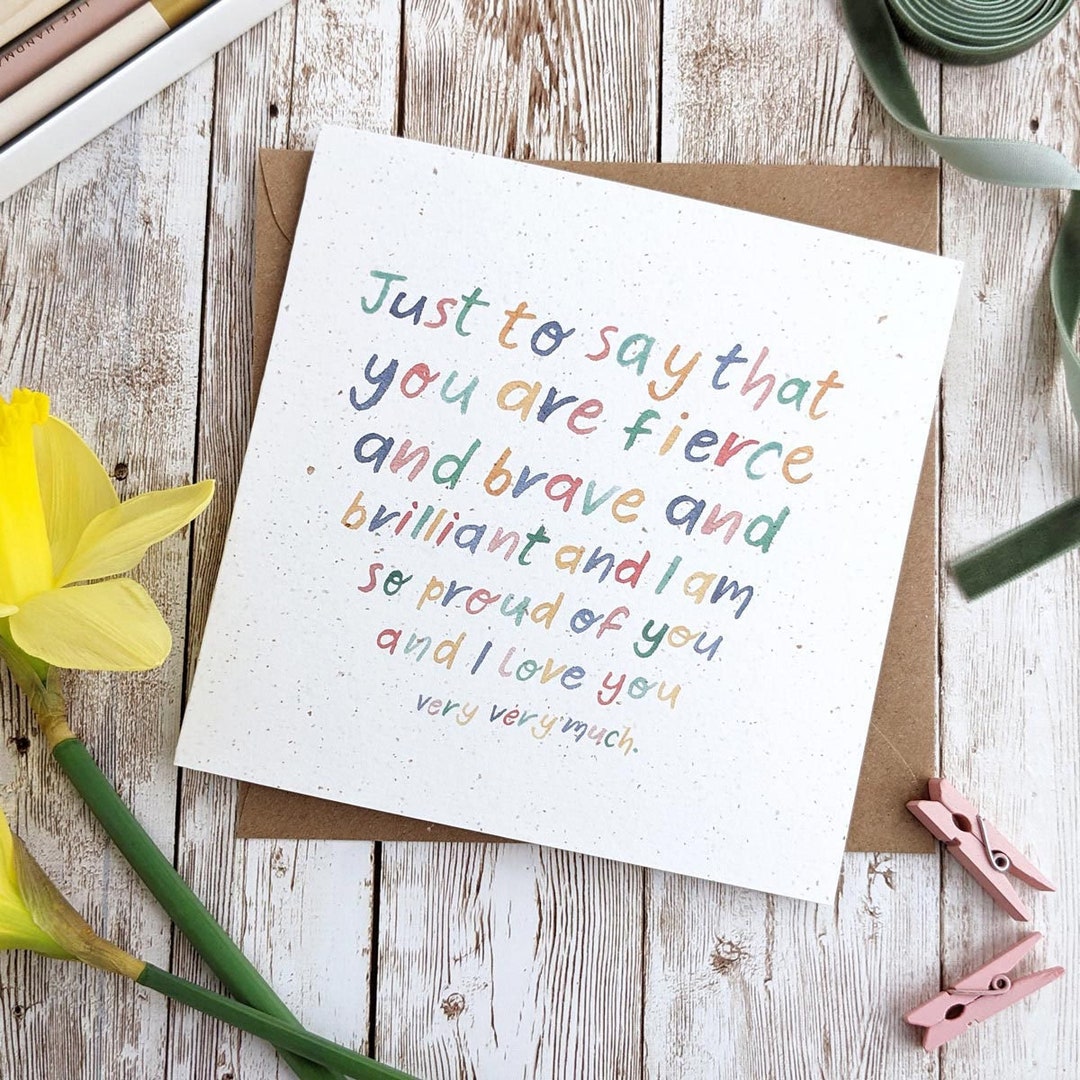 LIFE HANDM
Just to say that
you are fierce
and brave and
brilliant and I am
so proud of you
and I love you
very very much.